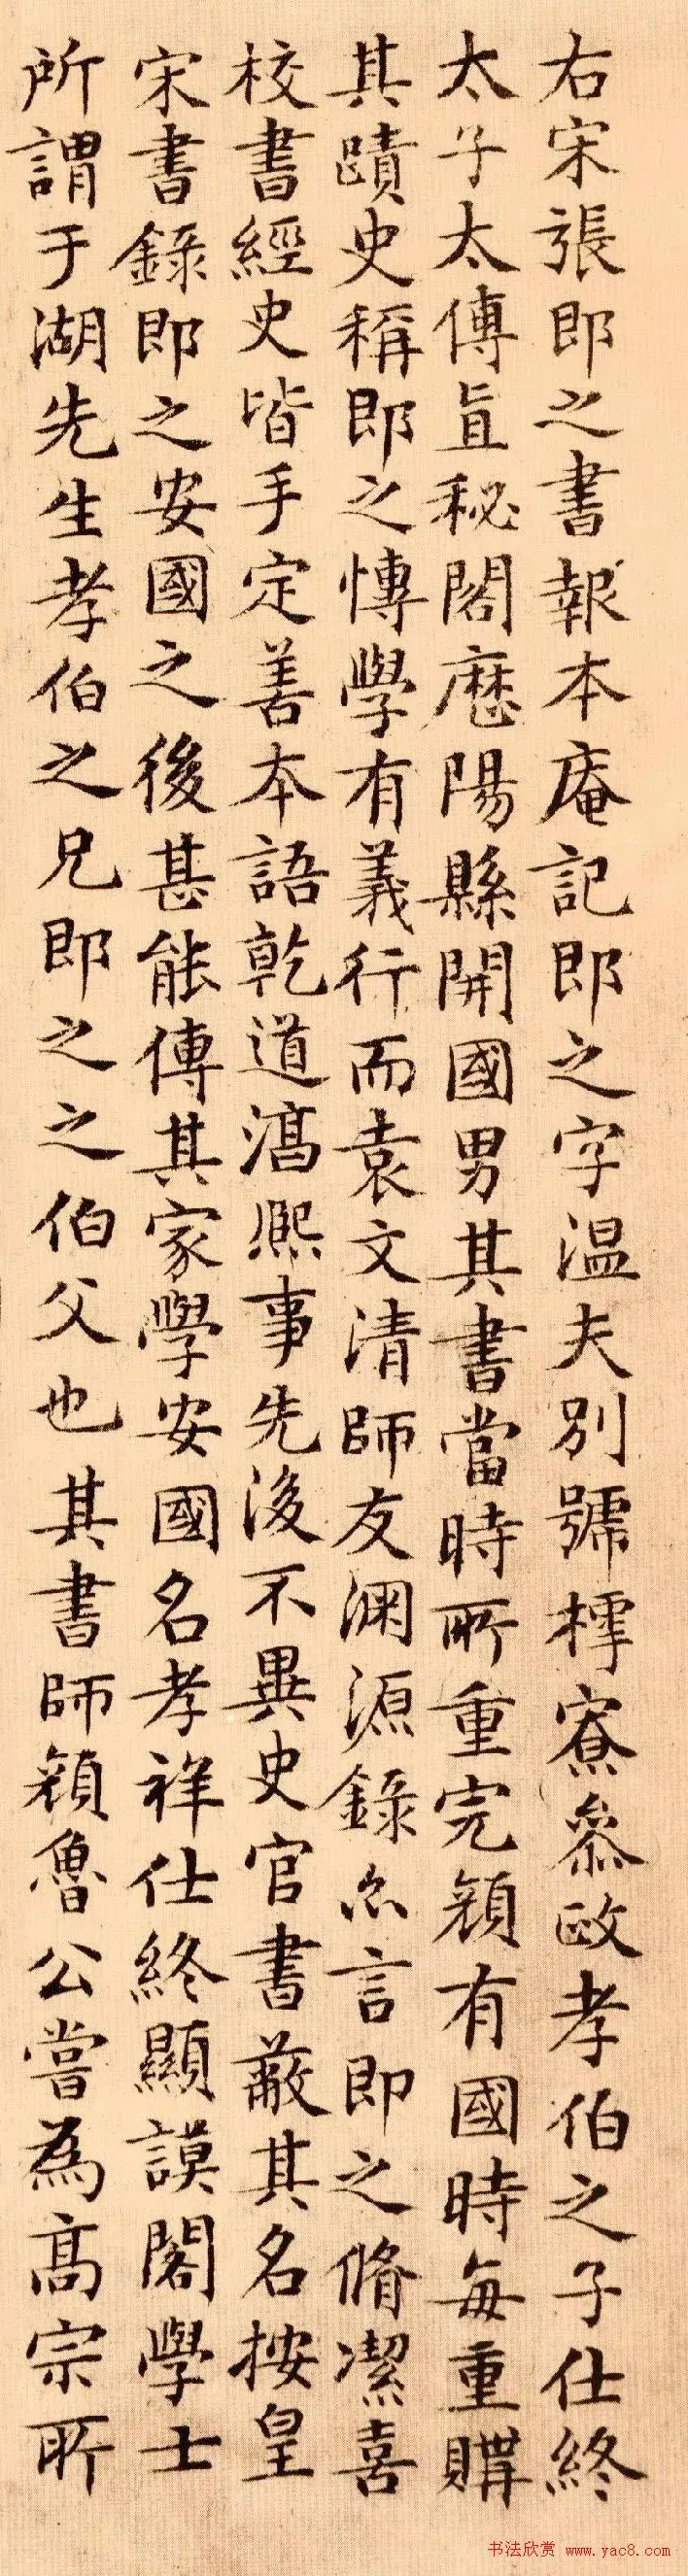 右宋張即之書報本庵記即之字温夫别號樗寮叅政孝伯之子仕終
太子太傅直秘閣歷陽縣開國男其書當時所重完顔有國時每重購
其蹟史稱即之慱學有義行而袁文清師友渊源錄亦言即之脩潔喜
校書經史皆手定善本語乾道淳熙事先後不異史官書蔽其名按皇
宋書錄即之安國之後甚能傳其家學安國名孝祥仕終顯謨閣學士
所謂于湖先生孝伯之兄即之之伯父也其書師顔魯公嘗為高宗所
书法欣赏 www.yac8.com